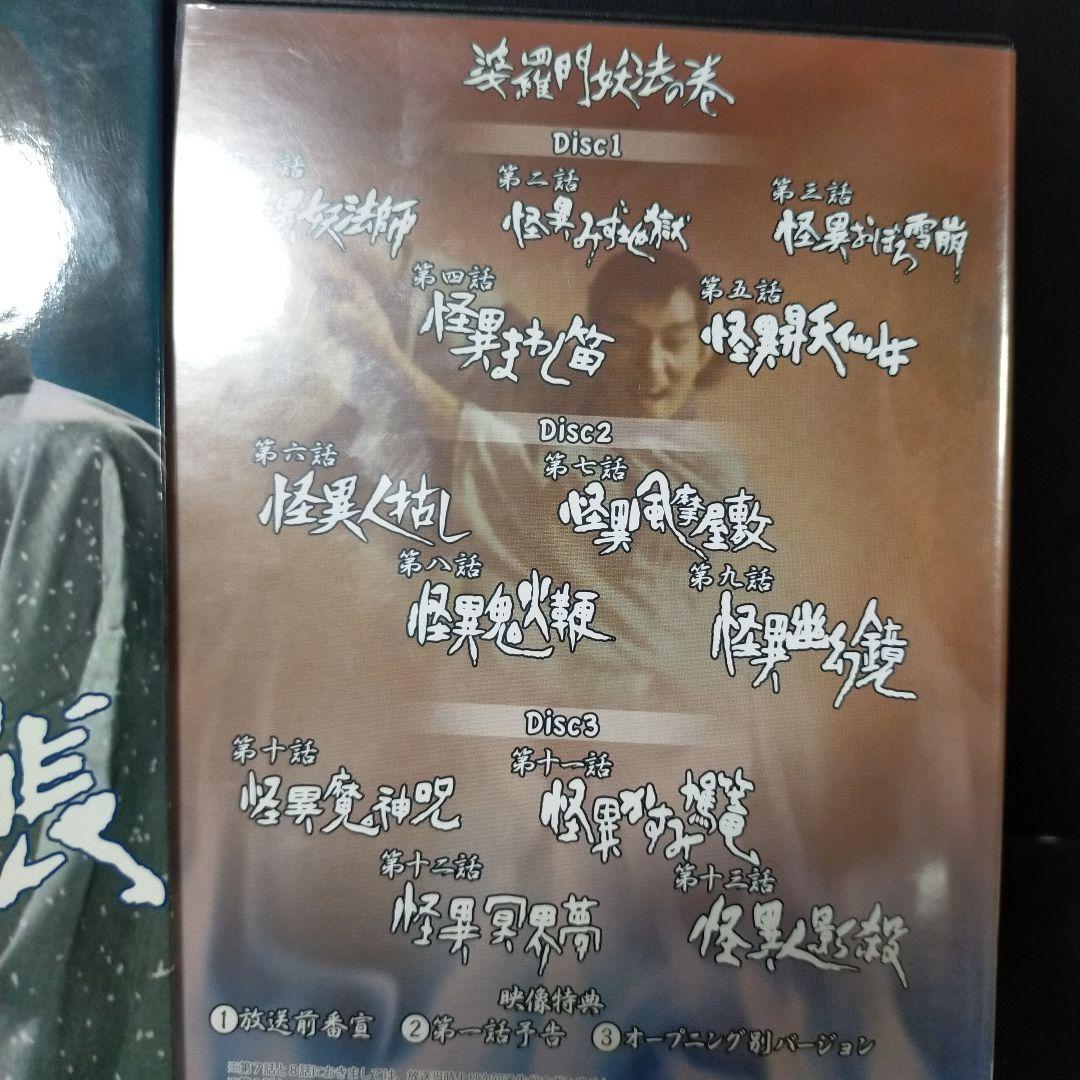 婆羅門妖法の巻
Disc1
話
異妖法師
第二話
怪異みずち地獄
第三話
怪異おぼろ雪崩
第四話
怪異まわし笛
第五話
怪異昇天仙女
Disc2
第六話
怪異人枯し
第七話
怪異風摩屋敷
第八話
怪異鬼火鞭
第九話
怪異幽幻鏡
Disc3
第十話
怪異魔神呪
第十一話
怪異かすみ駕篭
第十二話
怪異冥界夢
第十三話
怪異人影殺
映像特典
①放送前番宣 ②第一話予告 ③オープニング別バージョン
※第7話と8話におきましては、放送当時
帳